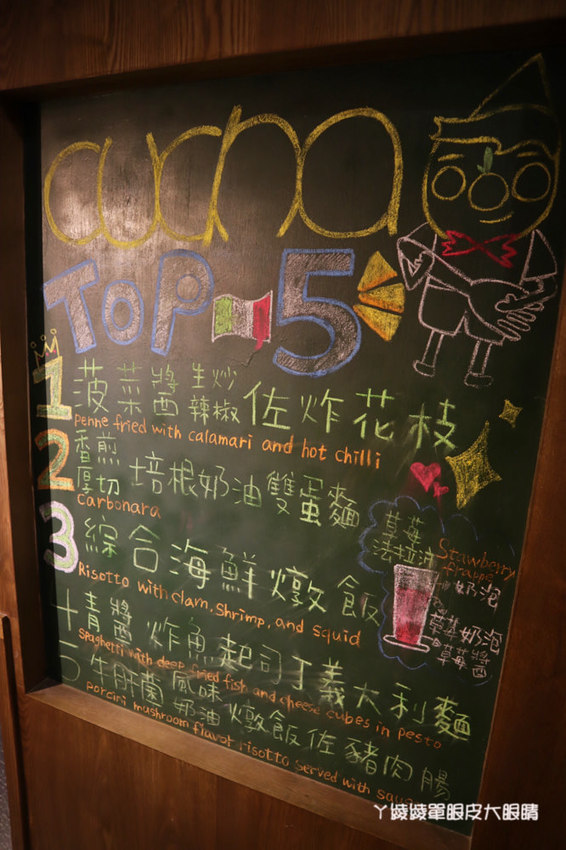 cucina
TOP 5
1 菠菜醬 生炒辣椒 佐炸花枝
penne fried with calamari and hot chilli
2 香煎厚切 培根奶油雙蛋麵
Carbonara
3 綜合海鮮燉飯
Risotto with clam, Shrimp, and squid
草莓
法拉沛
Stawberry
frappe
奶泡
草莓奶泡
草莓醬
青醬炸魚起司丁義大利麵
spaghetti with deep fried fish and cheese cubes in pesto
5 牛肝菌風味奶油燉飯佐豬肉腸
porcini mushroom flavor risotto served with
ㄚ綾綾單眼皮大眼睛